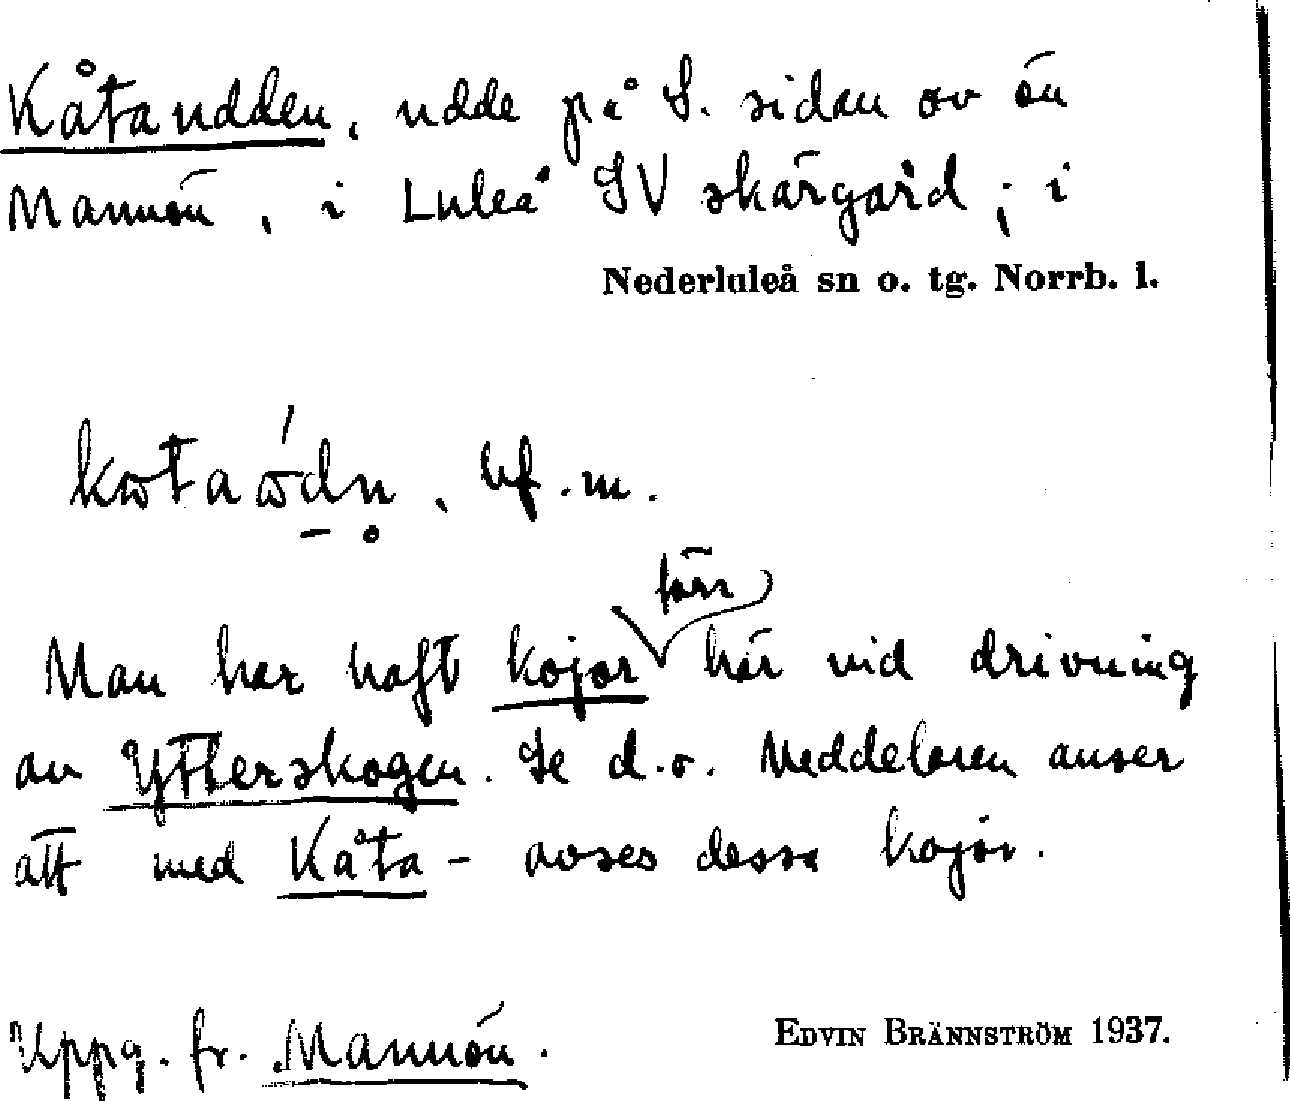 Kåtaudden, udde på S. sidan av ön
Mannön, i Luleå SV skärgård; i
Nederluleå sn o. tg. Norrb. l.
bf. m.
förr
Man har haft kojor här vid drivning
av Ytterskogen. Se d.o. Meddelaren anser
att med Kåta- avses dessa kojor.
Uppg. fr. Mannön.
EDVIN BRÄNNSTRÖM 1937.